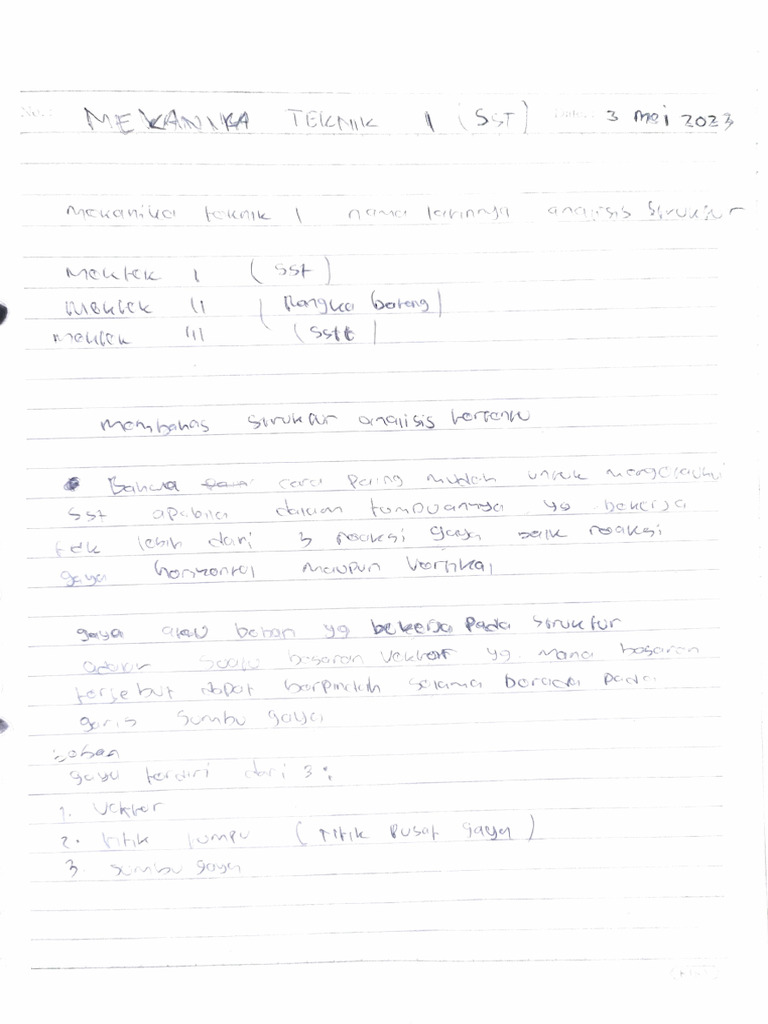 No.: MEKANIKA TEKNIK 1 (SST) Date: 3 mei 2023
Mekanika teknik 1 nama lainnya analisis struktur
Mektek I (SST)
Mektek II (Rangka batang)
mektek III (SSTT)
membahas struktur analisis tertentu
Bahwa cara paling mudah untuk mengetahui
SST apabila dalam tumpuannya yg bekerja
tdk lebih dari 3 reaksi gaya baik reaksi
gaya horizontal maupun vertikal
gaya atau beban yg bekerja pada struktur
adalah suatu besaran vektor yg mana besaran
tersebut dapat berpindah selama berada pada
garis sumbu gaya
beban
gaya terdiri dari 3 :
1. Vektor
2. titik tumpu (titik pusat gaya)
3. sumbu gaya